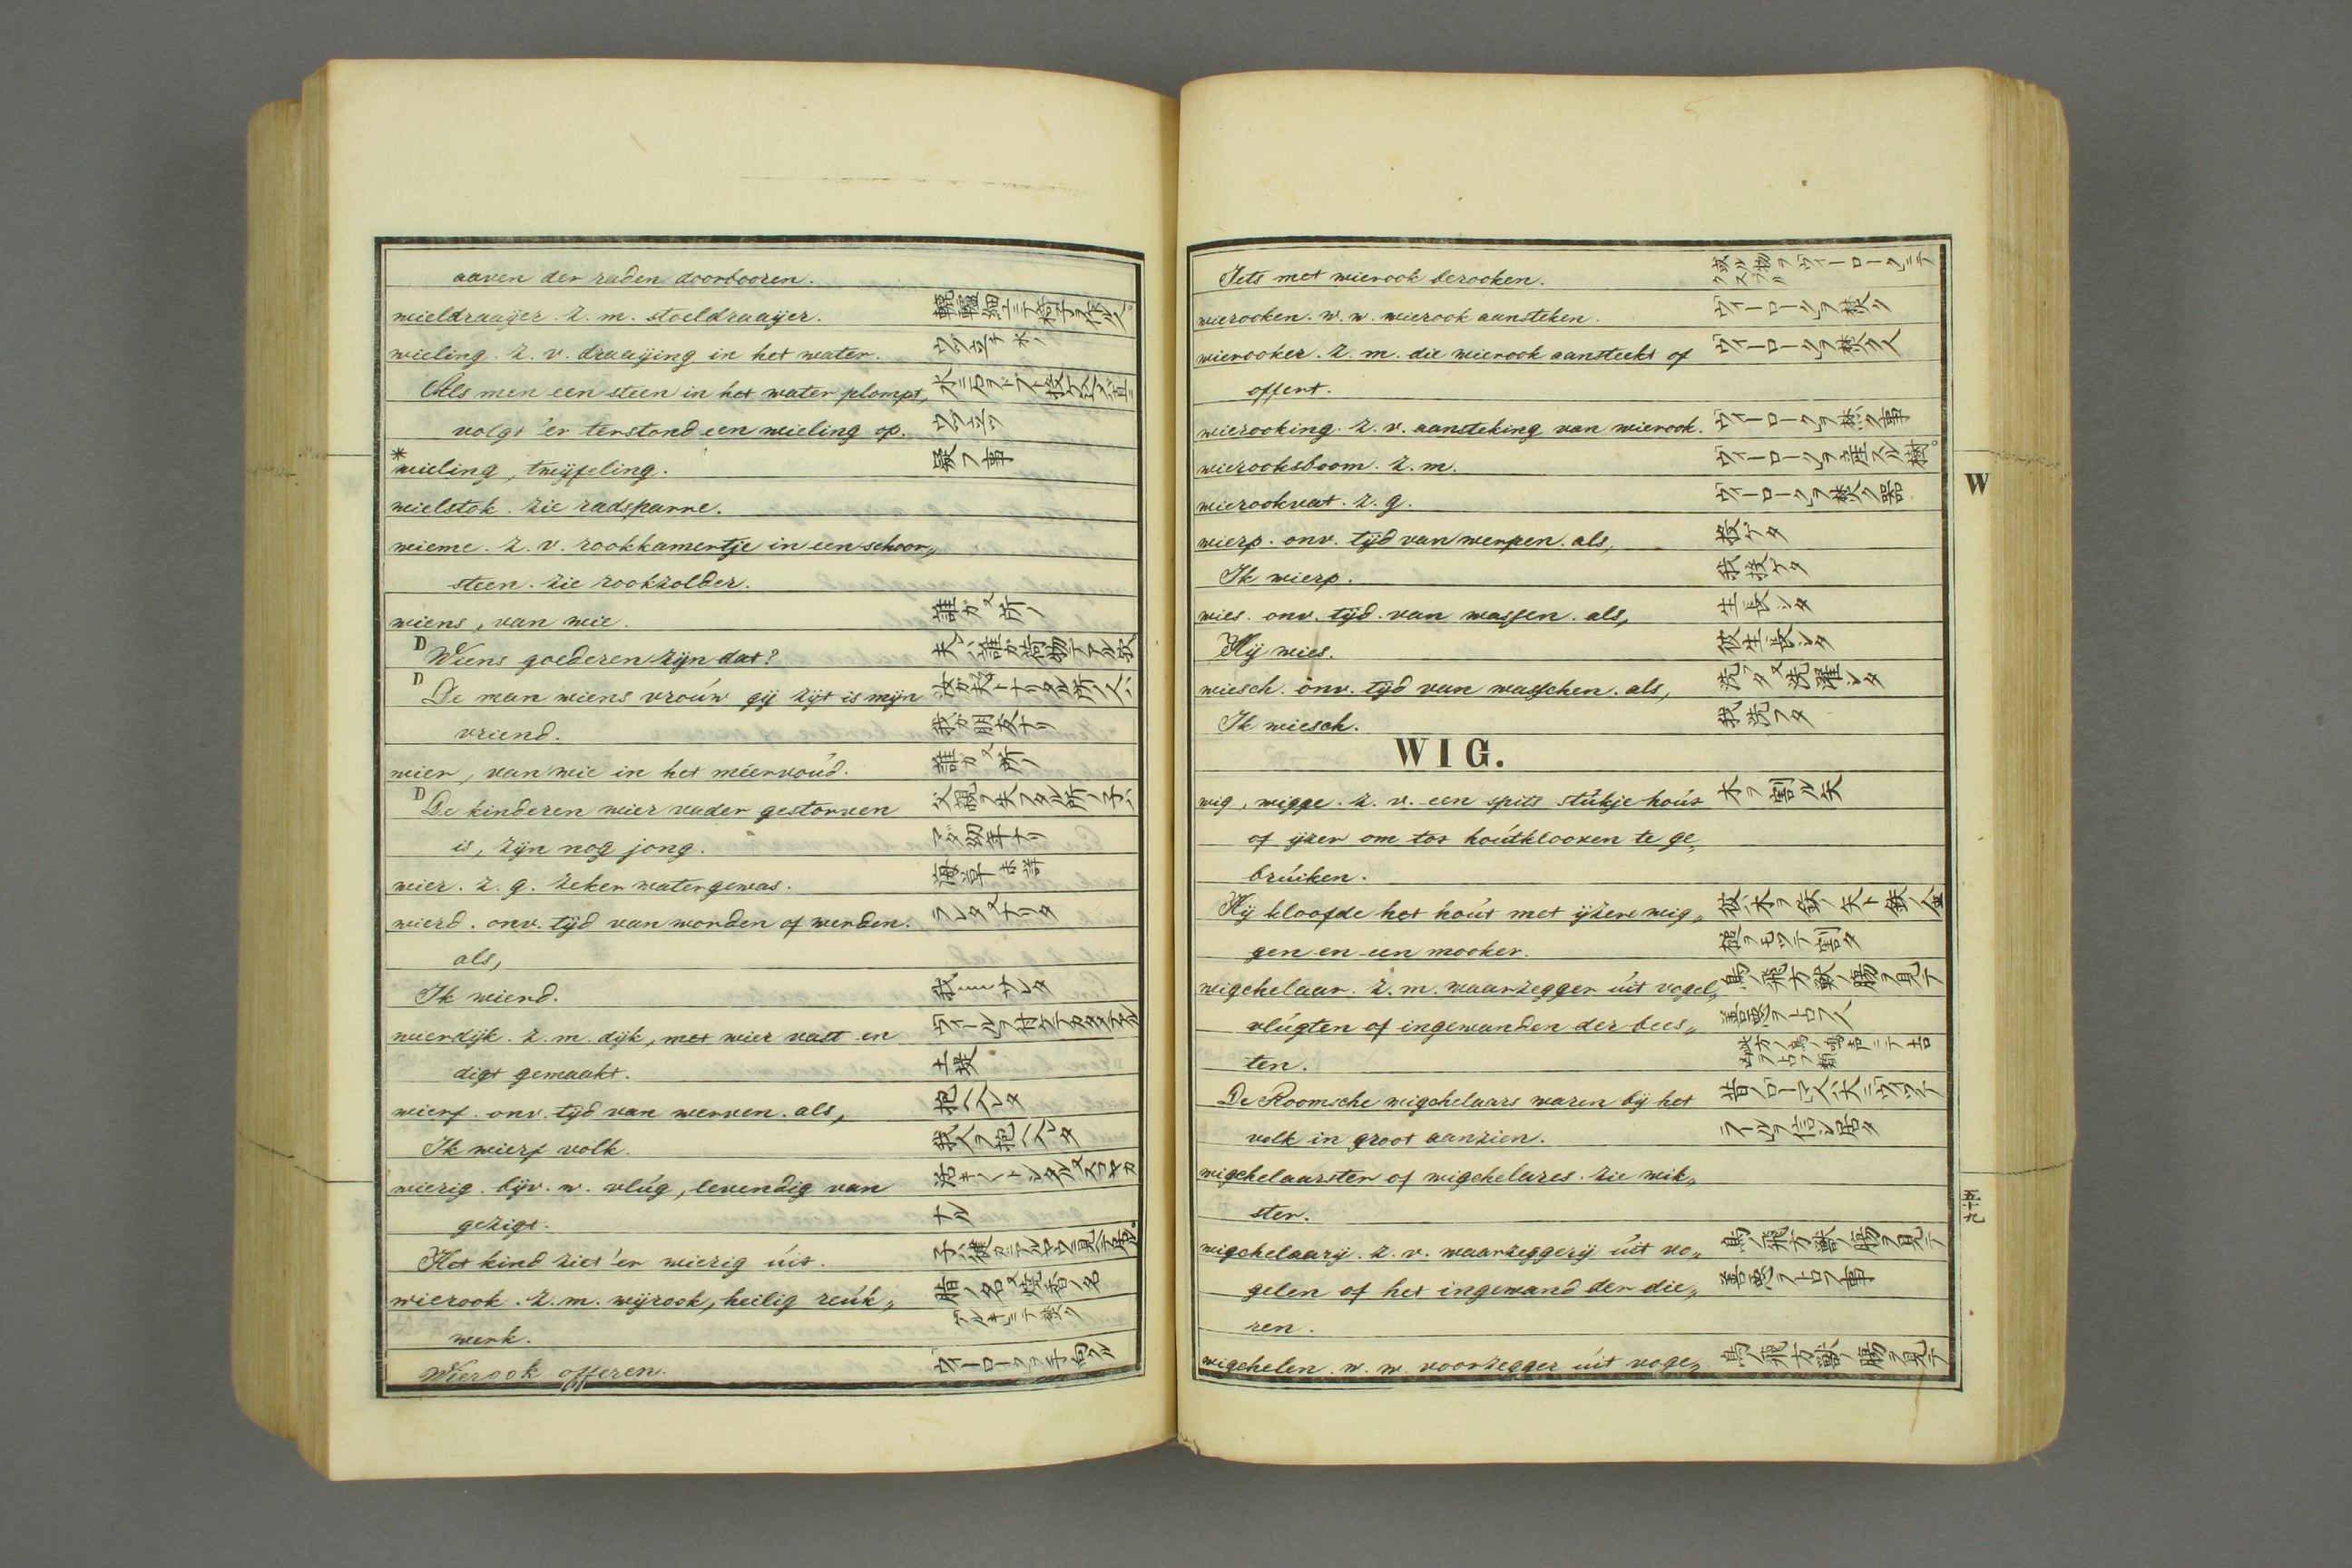 aaven der raden doorbooren.
wieldraaijer. z. m. stoeldraaijer.
wieling. z. v. draaijing in het water.
Als men een steen in het water plompt,
volgt 'er terstond een wieling op. ウヅ立ツ
* wieling, twijfeling. 疑フ事
wielstok. zie radsparre.
wieme. z. v. rookkamertje in een schoor„
steen. zie rookzolder.
wiens, van wie. 誰ガ 又 所ノ
D Wiens goederen zijn dat? 夫ハ誰ガ荷物テアル歟
D De man wiens vroúw gij zijt is mijn
vriend. 我ガ朋友ナリ
wier, van wie in het méervoúd. 誰ガ 又 所ノ
D De kinderen wier vader gestorven 父親ヲ失フタル所ノ子ハ
is, zijn nog jong. マダ幼年ナリ
wier. z. g. zeker watergewas. 海草 未詳
wierd. onv. tijd van worden of werden.
als,
Ik wierd.
wierdijk. z. m. dijk, met wier vast en
digt gemaakt. 土堤
wierf. onv. tijd van werven. als, 抱ヘ入レタ
Ik wierf volk. 我人ヲ抱ヘ入レタ
wierig. bijv. w. vlúg, levendig van
gezigt. ナル
Het kind ziet 'er wierig úit.
wierook. z. m. wijrook, heilig reúk„
werk.
Wierook offeren. ウィーロークヲ手向ル
Iets met wierook berooken. 或ル物ヲウィーロークニテクスブル
wierooken. w. w. wierook aansteken. ウィーロークヲ焚ク
wierooker. z. m. die wierook aansteekt of ウィーロークヲ焚ク人
offert.
wierooking. z. v. aansteking van wierook. ウィーロークヲ焚ク事
wierooksboom. z. m. ウィーロークヲ産スル樹。
wierookvat. z. g. ウィーロークヲ焚ク器
wierp. onv. tijd van werpen. als, 投ゲタ
Ik wierp. 我投ゲタ
wies. onv. tijd. van wassen. als, 生長シタ
Hij wies. 彼生長シタ
wiesch. onv. tijd van wasschen. als, 洗フタ 又 洗濯シタ
Ik wiesch. 我洗フタ
WIG.
wig, wigge. z. v. een spits stúkje hoút 木ヲ割ル矢
of ijzer om tot hoútklooven te ge„
brúiken.
Hij kloofde het hoút met ijzere wig„ 彼木ヲ鉄ノ矢ト鉄ノ金
gen en een mooker. 槌ヲモッテ割タ
wigchelaar. z. m. waarzegger úit vogel„ 鳥ノ飛方獣ノ腸ヲ見テ
vlúgten of ingewanden der bees„ 善悪ヲトロフ人
ten. 此方ノ鳥ノ鳴声ニテ吉凶ヲ占フ類
De Roomsche wigchelaars waren bij het
volk in groot aanzien.
wigchelaarster of wigchelares. zie wik„
ster.
wigchelaarij. z. v. waarzeggerij úit vo„ 鳥ノ飛方獣ノ腸ヲ見テ
gelen of het ingewand der die„ 善悪ヲトロフ事
ren.
wigchelen. w. w. voorzegger úit voge„ 鳥ノ飛方獣ノ腸ヲ見テ
W
五十九